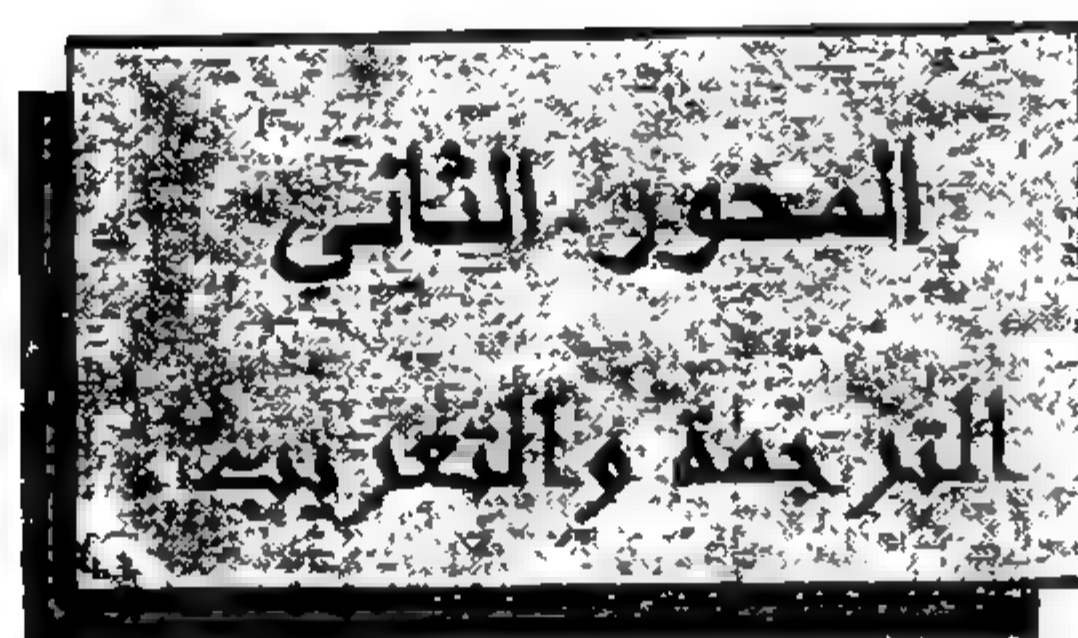 المحور الثاني
الترجمة والتعريب